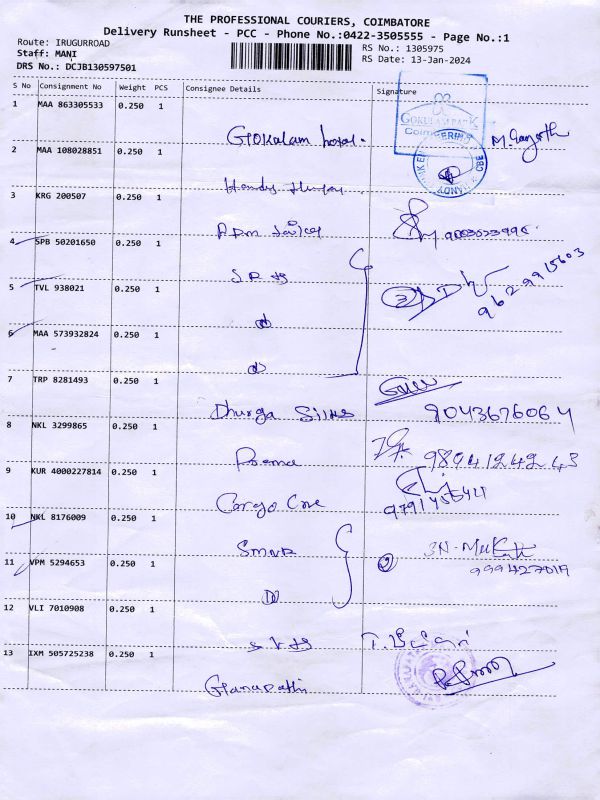 THE PROFESSIONAL COURIERS, COIMBATORE
Delivery Runsheet - PCC - Phone No.:0422-3505555 - Page No.:1
Route: IRUGURROAD
Staff: MANI
DRS No.: DCJB130597501
RS No.: 1305975
RS Date: 13-Jan-2024
S No Consignment No Weight PCS Consignee Details Signature
1 MAA 863305533 0.250 1
Gokulam hotel.
GOKULAM PARK
Coimbatore
2 MAA 108028851 0.250 1
CBE
3 KRG 200507 0.250 1
4 SPB 50201650 0.250 1
5 TVL 938021 0.250 1
9629915603
6 MAA 573932824 0.250 1
7 TRP 8281493 0.250 1
Dhurga Silks 9043676064
8 NKL 3299865 0.250 1
Poema 9894124243
9 KUR 4000227814 0.250 1
Cargo Care
10 NKL 8176009 0.250 1
SMNR
11 VPM 5294653 0.250 1
999427019
12 VLI 7010908 0.250 1
13 IXM 505725238 0.250 1
Ganapathi